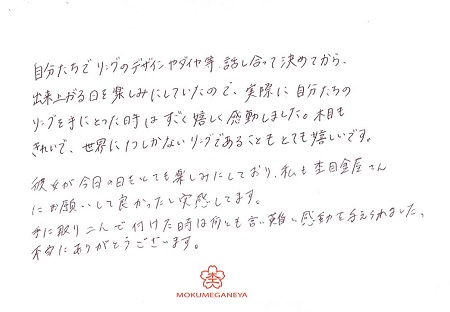 自分たちでリングのデザインやダイヤ等、話し合って決めてから、
出来上がる日を楽しみにしていたので、実際に自分たちの
リングを手にとった時はすごく嬉しく感動しました。木目も
きれいで、世界に1つしかないリングであることもとても嬉しいです。
彼女が今日の日をとても楽しみにしており、私も杢目金屋さん
にお願いして良かったと実感してます。
手に取り二人で付けた時は何とも言い難い感動を与えられました。
本当にありがとうございます。
MOKUMEGANEYA